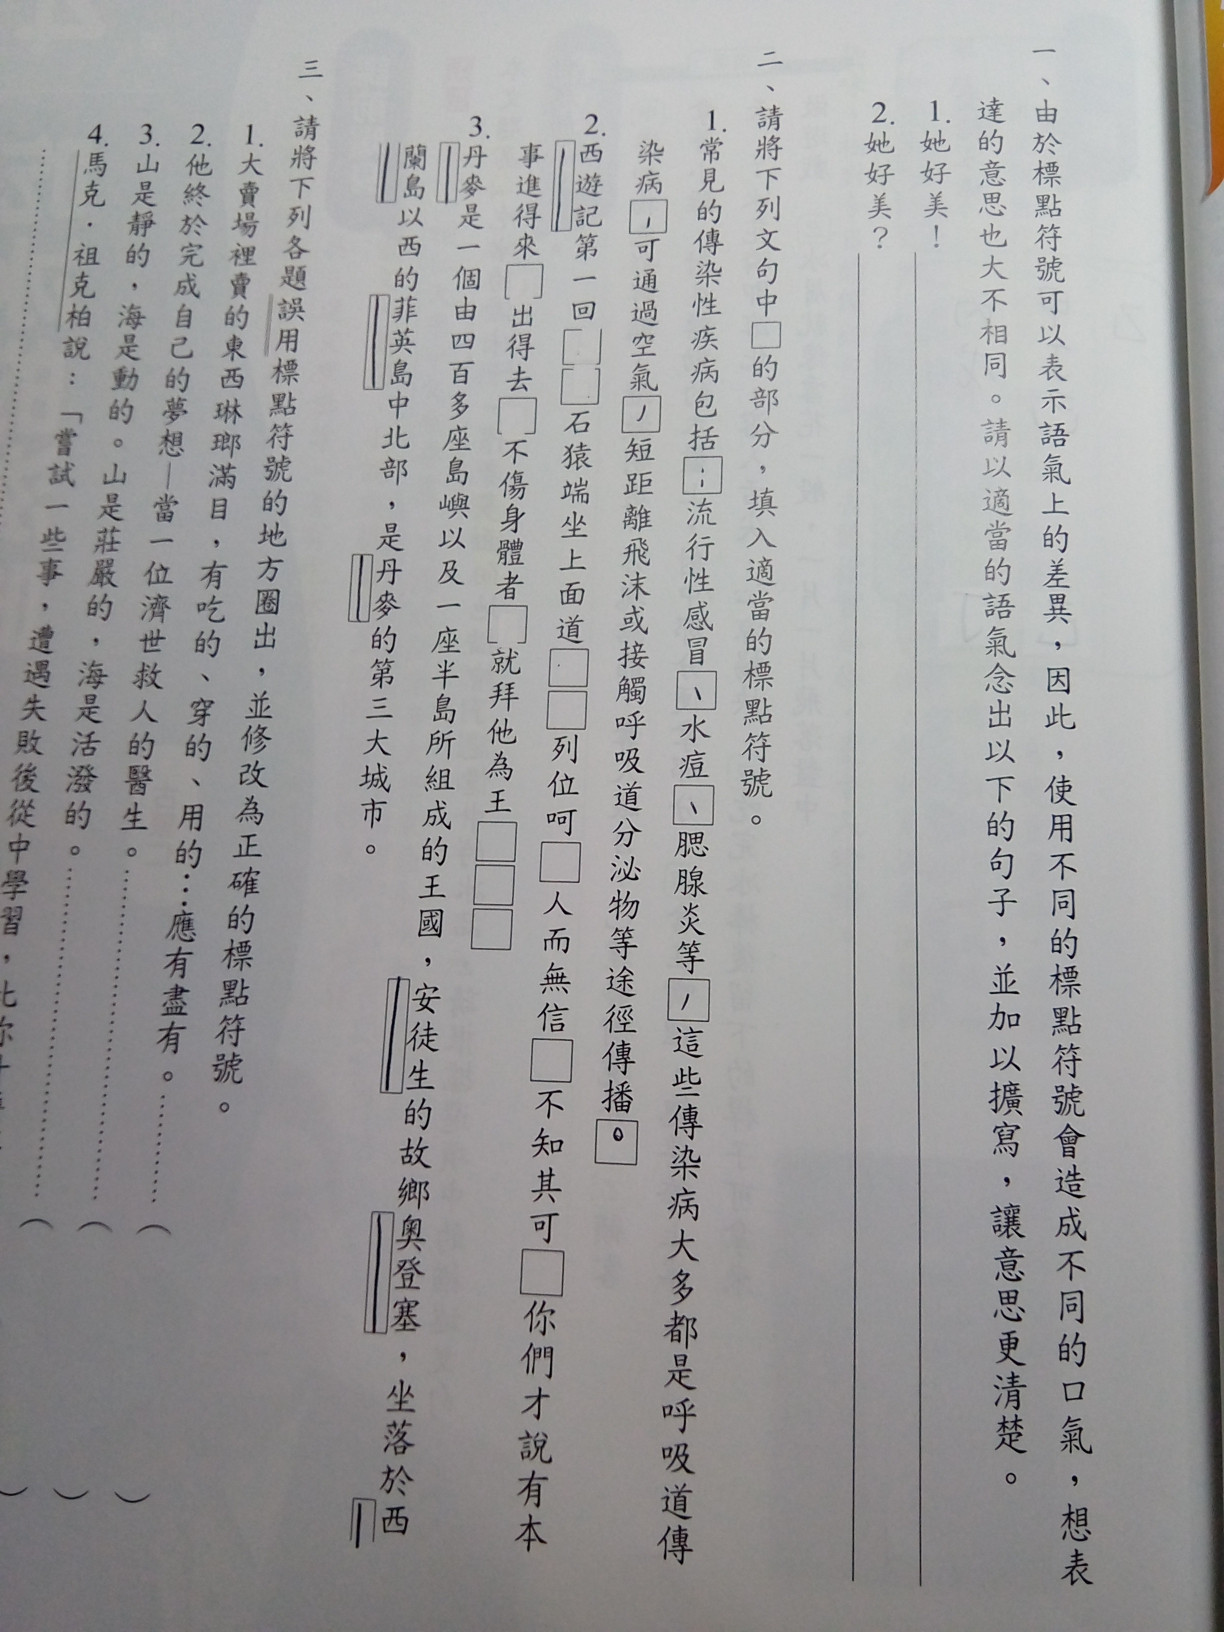 一、由於標點符號可以表示語氣上的差異，因此，使用不同的標點符號會造成不同的口氣，想表
達的意思也大不相同。請以適當的語氣念出以下的句子，並加以擴寫，讓意思更清楚。
1.她好美！
2.她好美？
二、請將下列文句中□的部分，填入適當的標點符號。
1.常見的傳染性疾病包括：流行性感冒、水痘、腮腺炎等，這些傳染病大多都是呼吸道傳
染病，可通過空氣，短距離飛沫或接觸呼吸道分泌物等途徑傳播。
2.西遊記第一回□□石猿端坐上面道□□列位呵□人而無信□不知其可□你們才說有本
事進得來□出得去□不傷身體者□就拜他為王□□□
3.丹麥是一個由四百多座島嶼以及一座半島所組成的王國，安徒生的故鄉奧登塞，坐落於西
蘭島以西的菲英島中北部，是丹麥的第三大城市。
三、請將下列各題誤用標點符號的地方圈出，並修改為正確的標點符號。
1.大賣場裡賣的東西琳瑯滿目，有吃的、穿的、用的…應有盡有。（ ）
2.他終於完成自己的夢想—當一位濟世救人的醫生。（ ）
3.山是靜的，海是動的。山是莊嚴的，海是活潑的。（ ）
4.馬克．祖克柏說：「嘗試一些事，遭遇失敗後從中學習，比你什